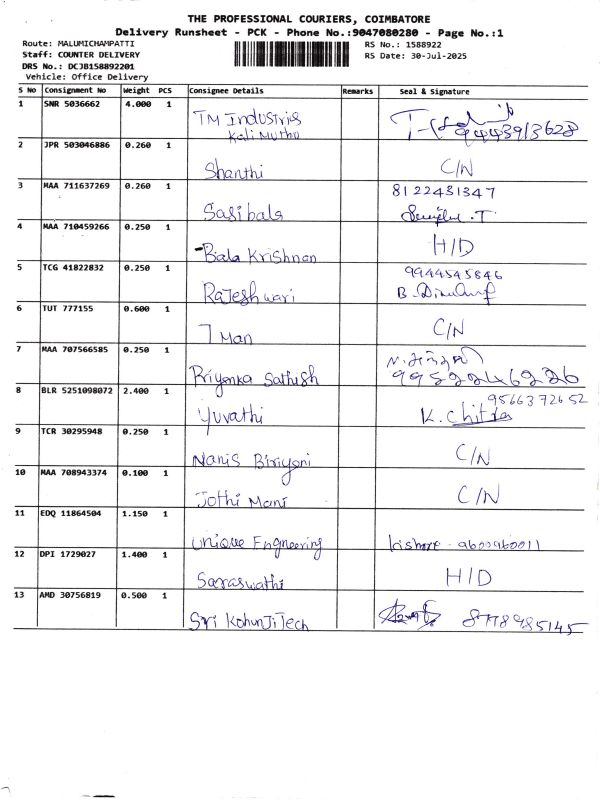 THE PROFESSIONAL COURIERS, COIMBATORE
Delivery Runsheet - PCK - Phone No.:9047080280 - Page No.:1
Route: MALUMICHAMPATTI
RS No.: 1588922
Staff: COUNTER DELIVERY
RS Date: 30-Jul-2025
DRS No.: DCJB158892201
Vehicle: Office Delivery
S No Consignment No Weight PCS Consignee Details Remarks Seal & Signature
1 SNR 5036662 4.000 1 TM Industries
Kali Muthu 9443913628
2 JPR 503046886 0.260 1 Shanthi C/N
3 MAA 711637269 0.260 1 Sasibala 8122431347
4 MAA 710459266 0.250 1 Bala Krishnan H/D
5 TCG 41822832 0.250 1 Rajeshwari 9944545846
6 TUT 777155 0.600 1 J Man C/N
7 MAA 707566585 0.250 1 Priyanka Sathish 9952246226
8 BLR 5251098072 2.400 1 Yuvathi 9566372652
K. Chitra
9 TCR 30295948 0.250 1 Nanis Biriyani C/N
10 MAA 708943374 0.100 1 Jothi Mani C/N
11 EDQ 11864504 1.150 1 Unique Engneering kishore - 9600960011
12 DPI 1729027 1.400 1 Saraswathi H/D
13 AMD 30756819 0.500 1 Sri KohunJiTech 8778985145